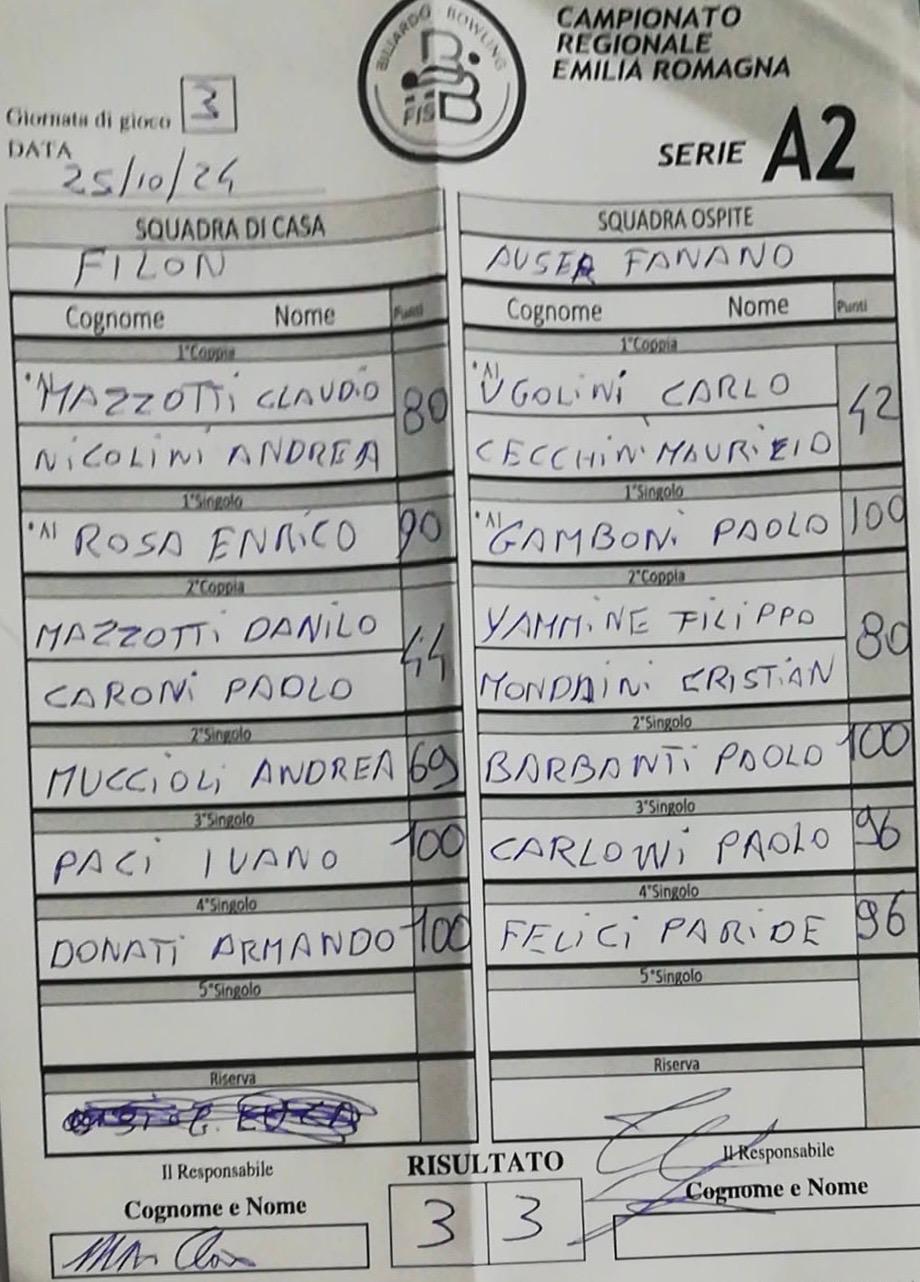 BILIARDO BOWLING
FISBB
CAMPIONATO
REGIONALE
EMILIA ROMAGNA
SERIE A2
Giornata di gioco 3
DATA
25/10/24
SQUADRA DI CASA
FILON
Cognome Nome Punti
1°Coppia
•A1 MAZZOTTi CLAUDiO 80
NiCOLiNi ANDREA
1°Singolo
•A1 ROSA ENRiCO 90
2°Coppia
MAZZOTTi DANiLO 44
CARONi PAOLO
2°Singolo
MUCCiOLi ANDREA 69
3°Singolo
PACi IVANO 100
4°Singolo
DONATi ARMANDO 100
5°Singolo
Riserva
Il Responsabile
Cognome e Nome
SQUADRA OSPITE
AUSER FANANO
Cognome Nome Punti
1°Coppia
•A1 UGOLiNi CARLO 42
CECCHiNi MAURiZIO
1°Singolo
•A1 GAMBONi PAOLO 100
2°Coppia
YAMMiNE FiLiPPO 80
MONDAiNi CRISTiAN
2°Singolo
BARBANTi PAOLO 100
3°Singolo
CARLONi PAOLO 96
4°Singolo
FELiCi PARiDE 96
5°Singolo
Riserva
Il Responsabile
Cognome e Nome
RISULTATO
3 3